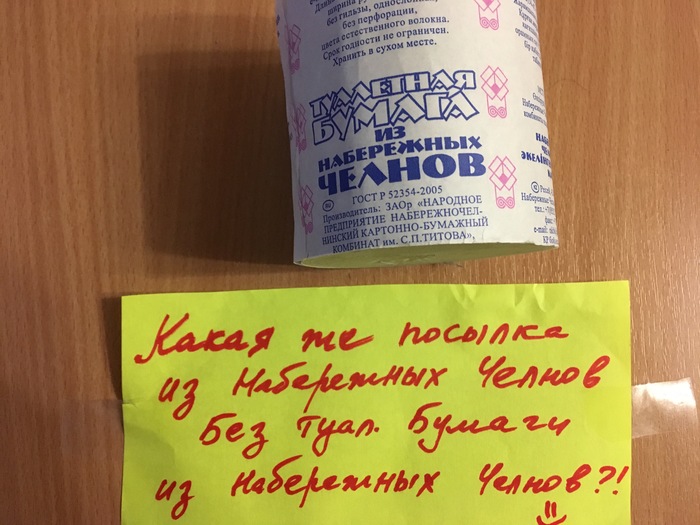 без гильзы, однослойная,
без перфорации,
цвета естественного волокна.
Срок годности не ограничен.
Хранить в сухом месте.
ТУАЛЕТНАЯ
БУМАГА
ИЗ
НАБЕРЕЖНЫХ
ЧЕЛНОВ
ГОСТ Р 52354-2005
Производитель: ЗАОр «НАРОДНОЕ
ПРЕДПРИЯТИЕ НАБЕРЕЖНОЧЕЛ-
НИНСКИЙ КАРТОННО-БУМАЖНЫЙ
КОМБИНАТ им. С.П.ТИТОВА»,
Какая же посылка
из Набережных Челнов
Без туал. Бумаги
из Набережных Челнов?!